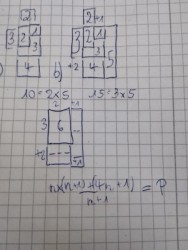 2 2+1
3 2 1 3 2 1
3 3 5
4 +2 4
b)
10=2×5 15=3×5
2 +1
3 6
+2
+1
n×(n+1)+(4n+1) = P
n+1